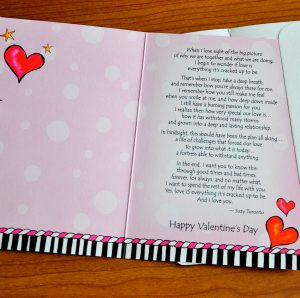 When I lose sight of the big picture
of why we are together and what we are doing,
I begin to wonder if love is
everything it's cracked up to be.
That's when I stop, take a deep breath
and remember how you're always there for me.
I remember how you still make me feel
when you smile at me, and how deep down inside
I still have a burning passion for you.
I realize then how very special our love is...
how it has withstood many storms
and grown into a deep and lasting relationship.
In hindsight, this should have been the plan all along...
a life of challenges that forced our love
to grow into what it is today...
a fortress able to withstand anything.
In the end, I want you to know this:
through good times and bad times,
forever, for always, and no matter what,
I want to spend the rest of my life with you.
Yes, love is everything it's cracked up to be.
And I love you.
— Suzy Toronto
Happy Valentine's Day